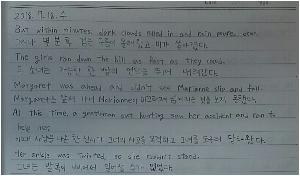 2018. 7. 18. 수
But within minutes, dark clouds rolled in and rain more, ever.
그러나 몇 분 후, 검은 구름이 몰려왔고, 비가 쏟아졌다.
The girls ran down the hill as fast as they could.
그 소녀는 가능한 한 빨리 언덕을 내려갔다.
Margaret was ahead and didn't see Marianne slip and fall.
Margaret는 앞서 가서 Marianne이
At this time, a gentleman out hunting saw her accident and ran to
help her.
이때 사냥을 나온 한 신사가 그녀의 사고를 목격하고 그녀를 도우러 달려왔다.
Her ankle was twisted, so she couldn't stand.
그녀는 발목이 삐어서 일어설 수가 없었다.